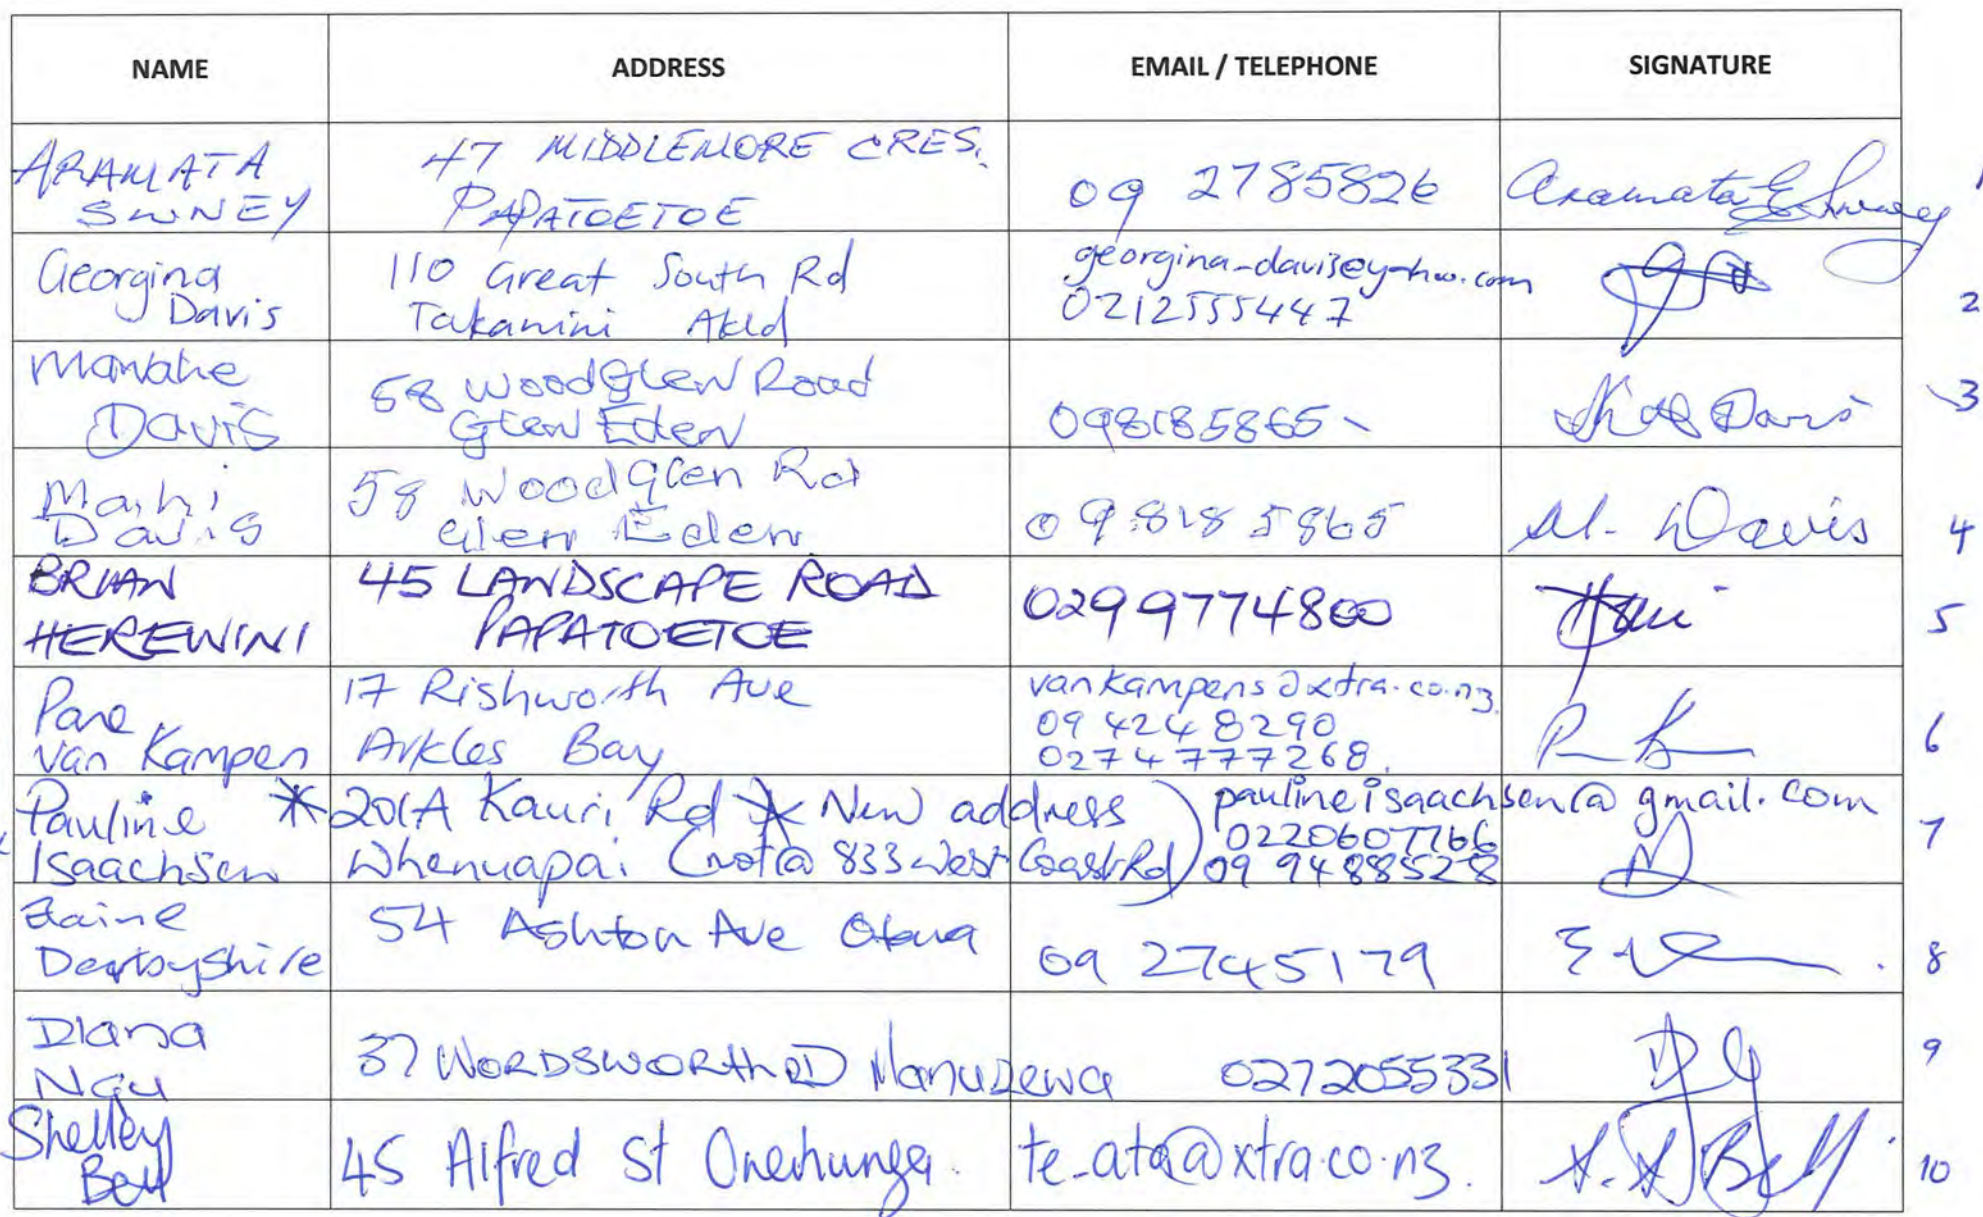 NAME ADDRESS EMAIL / TELEPHONE SIGNATURE
ARAMATA SWNEY 47 MIDDLEMORE CRES. PAPATOETOE 09 2785826 Aramata E Swney 1
Georgina Davis 110 Great South Rd Takanini Akld georgina-davis@yahoo.com 0212555447 2
Mawahe Davis 58 Woodglen Road Glen Eden 098185865 Davis 3
Mahi Davis 58 Woodglen Rd Glen Eden 09 8185865 M. Davis 4
BRIAN HEREWINI 45 LANDSCAPE ROAD PAPATOETOE 0299774800 5
Pare van Kampen 17 Rishworth Ave Arkles Bay vankampens@xtra.co.nz 09 424 8290 0274777268. 6
Pauline * Isaachsen 201A Kauri Rd * New address Whenuapai (not @ 833 West Coast Rd) paulineisaachsen@gmail.com 0220607766 09 9488528 7
Elaine Derbyshire 54 Ashton Ave Otara 09 2745179 8
Diana Ngu 37 WORDSWORTH RD Manurewa 0272055331 9
Shelley Bell 45 Alfred St Onehunga. te_ata@xtra.co.nz. Bell 10